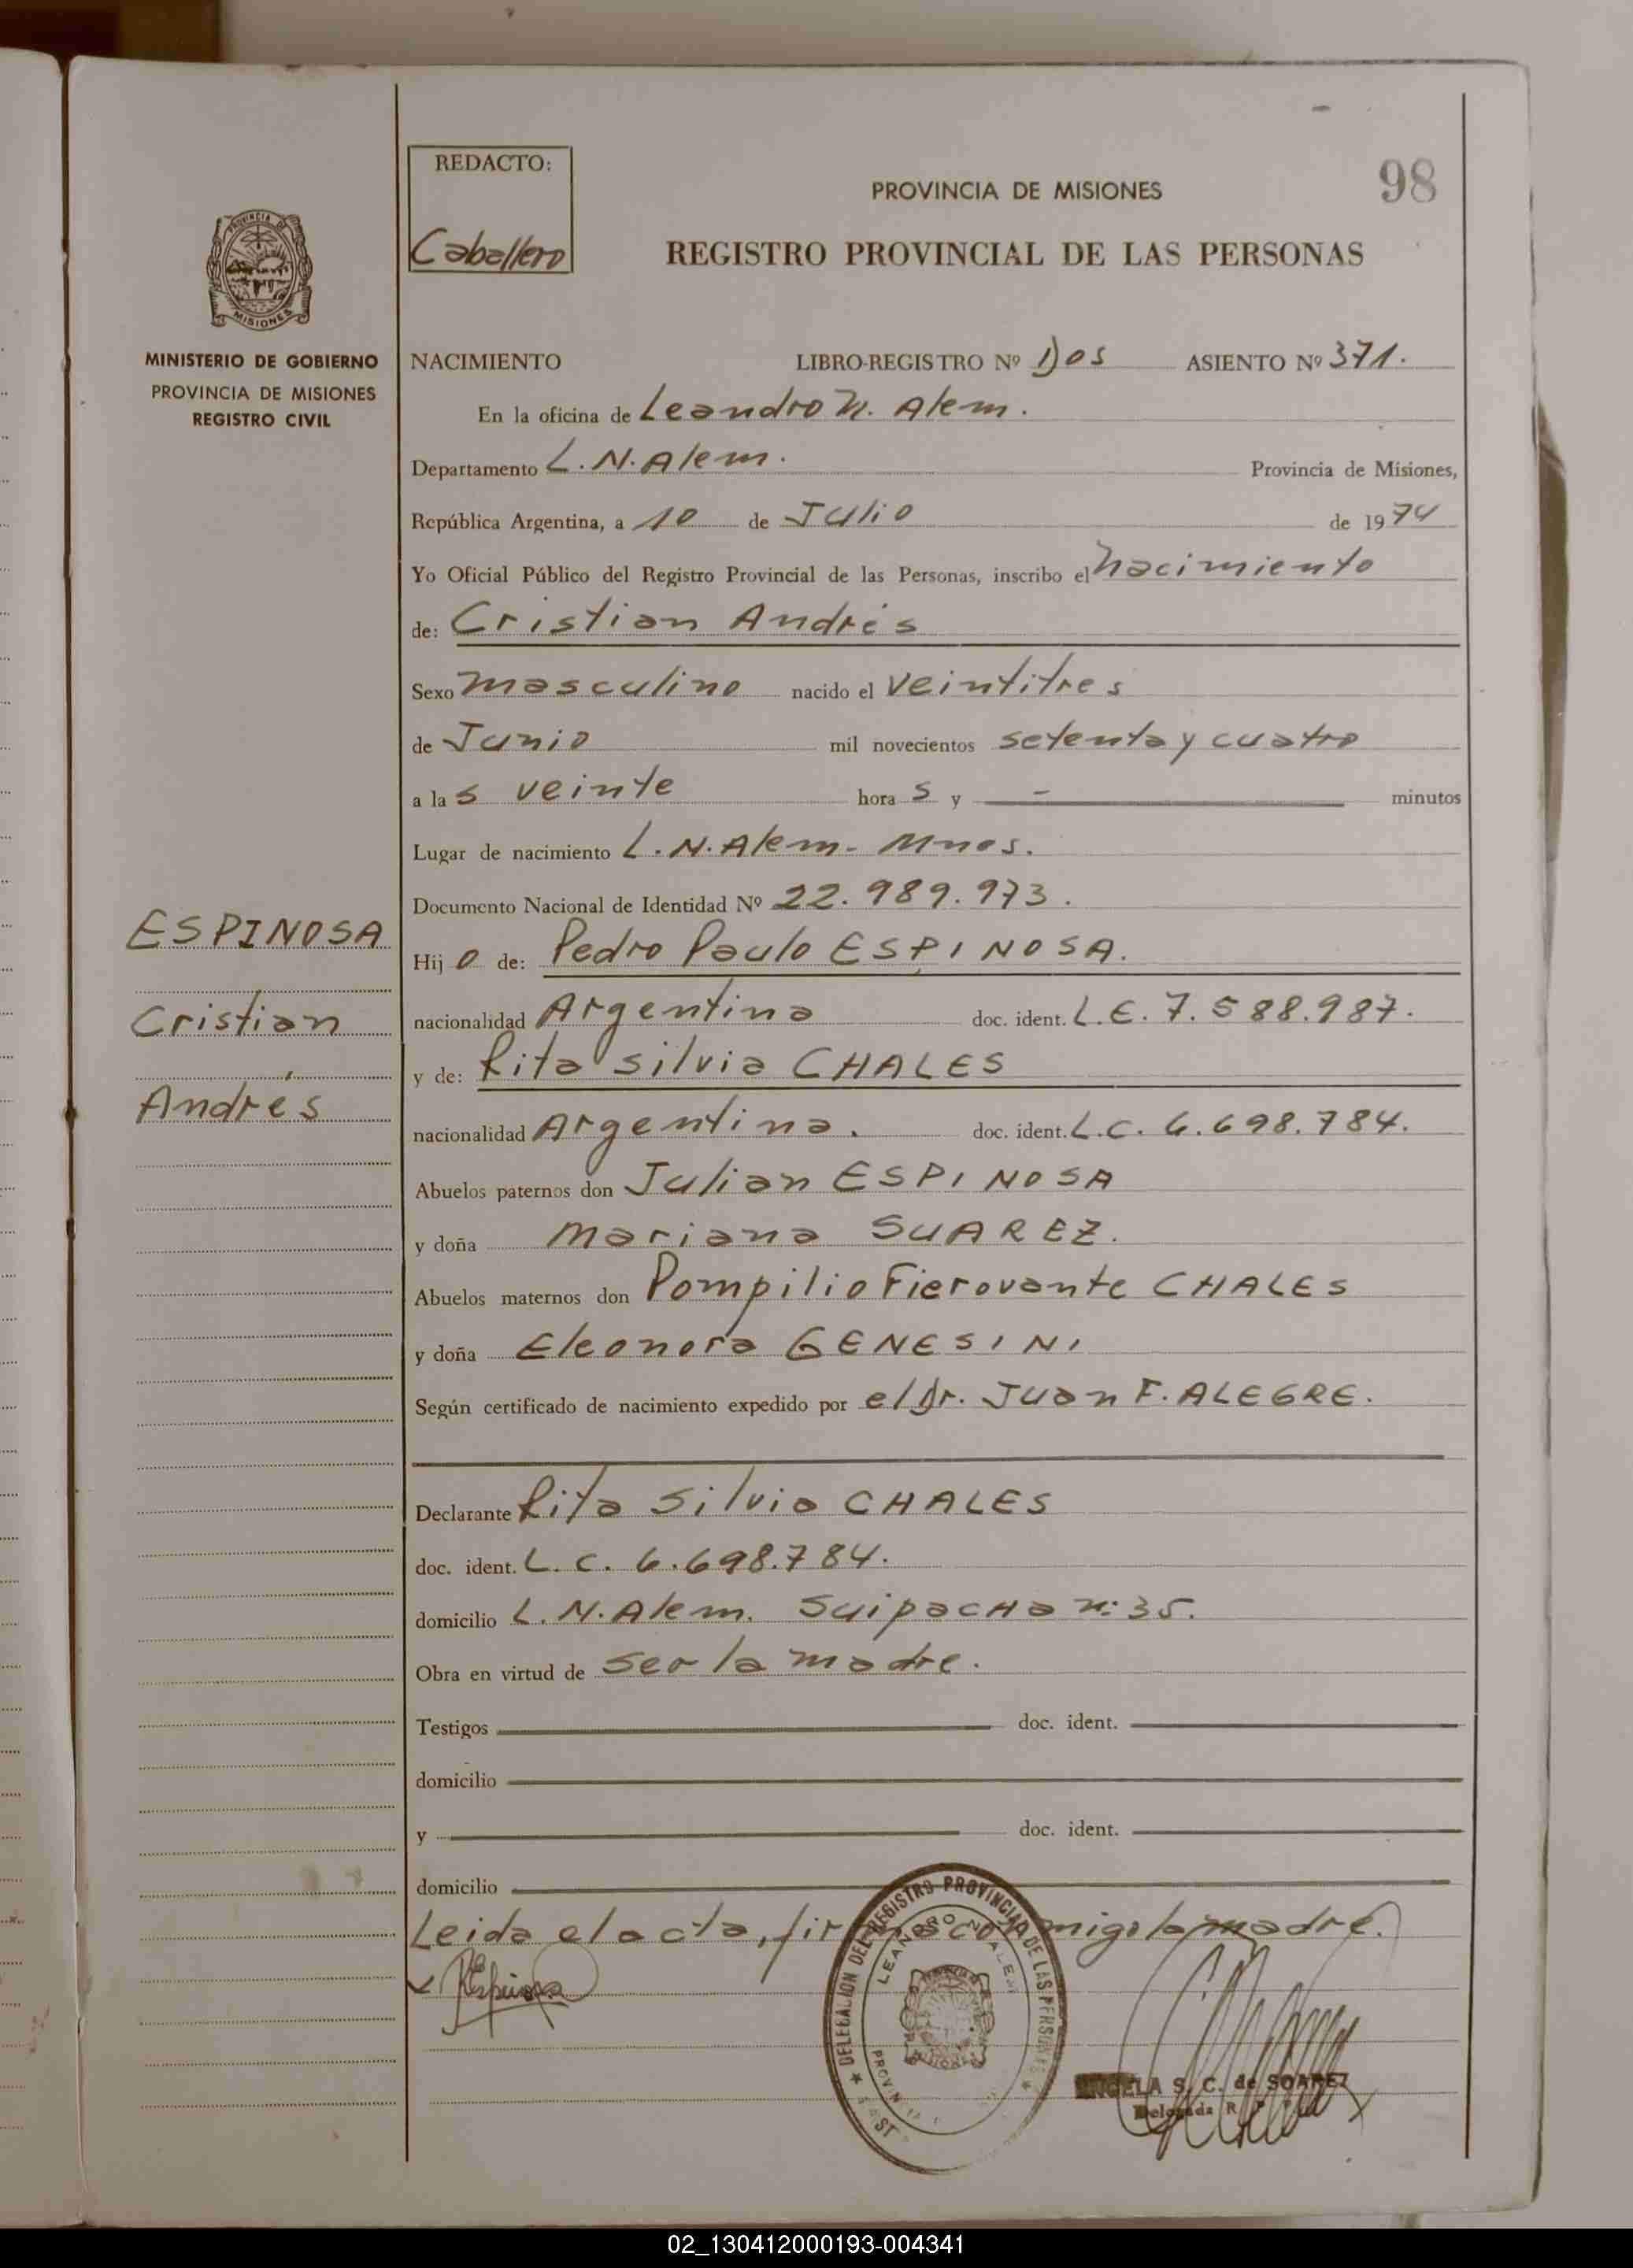 98
REDACTO:
Caballero
PROVINCIA DE MISIONES
REGISTRO PROVINCIAL DE LAS PERSONAS
PROVINCIA DE
MISIONES
MINISTERIO DE GOBIERNO
PROVINCIA DE MISIONES
REGISTRO CIVIL
NACIMIENTO LIBRO-REGISTRO Nº Dos ASIENTO Nº 371.
En la oficina de Leandro N. Alem.
Departamento L.N.Alem. Provincia de Misiones,
República Argentina, a 10 de Julio de 1974
Yo Oficial Público del Registro Provincial de las Personas, inscribo el nacimiento
de: Cristian Andrés
Sexo masculino nacido el veintitres
de Junio mil novecientos setenta y cuatro
a las veinte horas y - minutos
Lugar de nacimiento L.N.Alem- Mnes.
Documento Nacional de Identidad Nº 22.989.973.
ESPINOSA
Cristian
Andrés
Hijo de: Pedro Paulo ESPINOSA.
nacionalidad Argentina doc. ident. L.E. 7.588.987.
y de: Rita Silvia CHALES
nacionalidad Argentina. doc. ident. L.C. 6.698.784.
Abuelos paternos don Julian ESPINOSA
y doña Mariana SUAREZ.
Abuelos maternos don Pompilio Fierovante CHALES
y doña Eleonora GENESINI
Según certificado de nacimiento expedido por el Dr. Juan F. ALEGRE.
Declarante Rita Silvia CHALES
doc. ident. L.C. 6.698.784.
domicilio L.N.Alem. Suipacha n: 35.
Obra en virtud de ser la madre.
Testigos doc. ident.
domicilio
y doc. ident.
domicilio
Leida el acta, firma conmigo la madre.
REspinosa
DELEGACION DEL REGISTRO PROVINCIAL DE LAS PERSONAS
LEANDRO N. ALEM
MISIONES
ANGELA S. C. de SOAREZ
Delegada R. P. P.
02_130412000193-004341